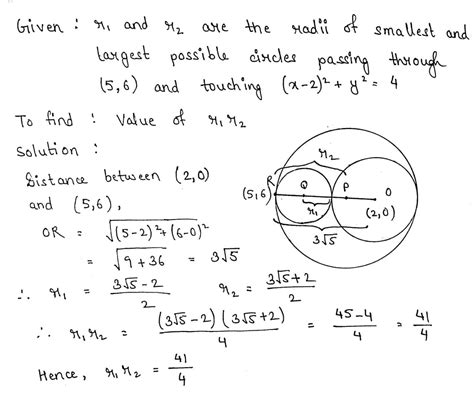 Given : r₁ and r₂ are the radii of smallest and
largest possible circles passing through
(5,6) and touching (x-2)² + y² = 4
To find : Value of r₁r₂
Solution :
Distance between (2,0)
and (5,6),
OR = √(5-2)²+(6-0)²
= √9+36 = 3√5
∴ r₁ = 3√5-2/2 r₂ = 3√5+2/2
∴ r₁r₂ = (3√5-2)(3√5+2)/4 = 45-4/4 = 41/4
Hence, r₁r₂ = 41/4
r₂
R
Q
P
O
(5,6)
r₁
(2,0)
3√5